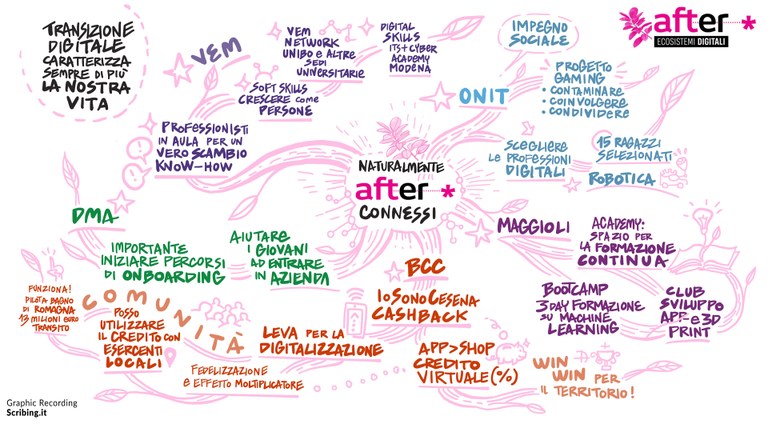 TRANSIZIONE
DIGITALE
CARATTERIZZA
SEMPRE DI PIÙ
LA NOSTRA
VITA
VEM
VEM
NETWORK
UNIBO E ALTRE
SEDI
UNIVERSITARIE
DIGITAL
SKILLS
ITS + CYBER
ACADEMY
MODENA
SOFT SKILLS
CRESCERE COME
PERSONE
PROFESSIONISTI
IN AULA PER UN
VERO SCAMBIO
KNOW-HOW
IMPEGNO
SOCIALE
after *
ECOSISTEMI DIGITALI
ONIT
PROGETTO
GAMING
• CONTAMINARE
• COINVOLGERE
• CONDIVIDERE
SCEGLIERE
LE PROFESSIONI
DIGITALI
15 RAGAZZI
SELEZIONATI
ROBOTICA
NATURALMENTE
after *
CONNESSI
DMA
IMPORTANTE
INIZIARE PERCORSI
DI ONBOARDING
AIUTARE
I GIOVANI
AD ENTRARE
IN AZIENDA
MAGGIOLI
ACADEMY:
SPAZIO PER
LA FORMAZIONE
CONTINUA
BOOTCAMP
3 DAY FORMAZIONE
SU MACHINE
LEARNING
CLUB
SVILUPPO
APP E 3D
PRINT
BCC
IO SONO CESENA
CASHBACK
APP > SHOP
CREDITO
VIRTUALE (%)
WIN
WIN PER
IL TERRITORIO!
LEVA PER LA
DIGITALIZZAZIONE
FEDELIZZAZIONE
E EFFETTO MOLTIPLICATORE
COMUNITÀ
POSSO
UTILIZZARE
IL CREDITO CON
ESERCENTI
LOCALI
FUNZIONA!
PILOTA BAGNO
DI ROMAGNA
13 MILIONI EURO
TRANSITO
Graphic Recording
Scribing.it